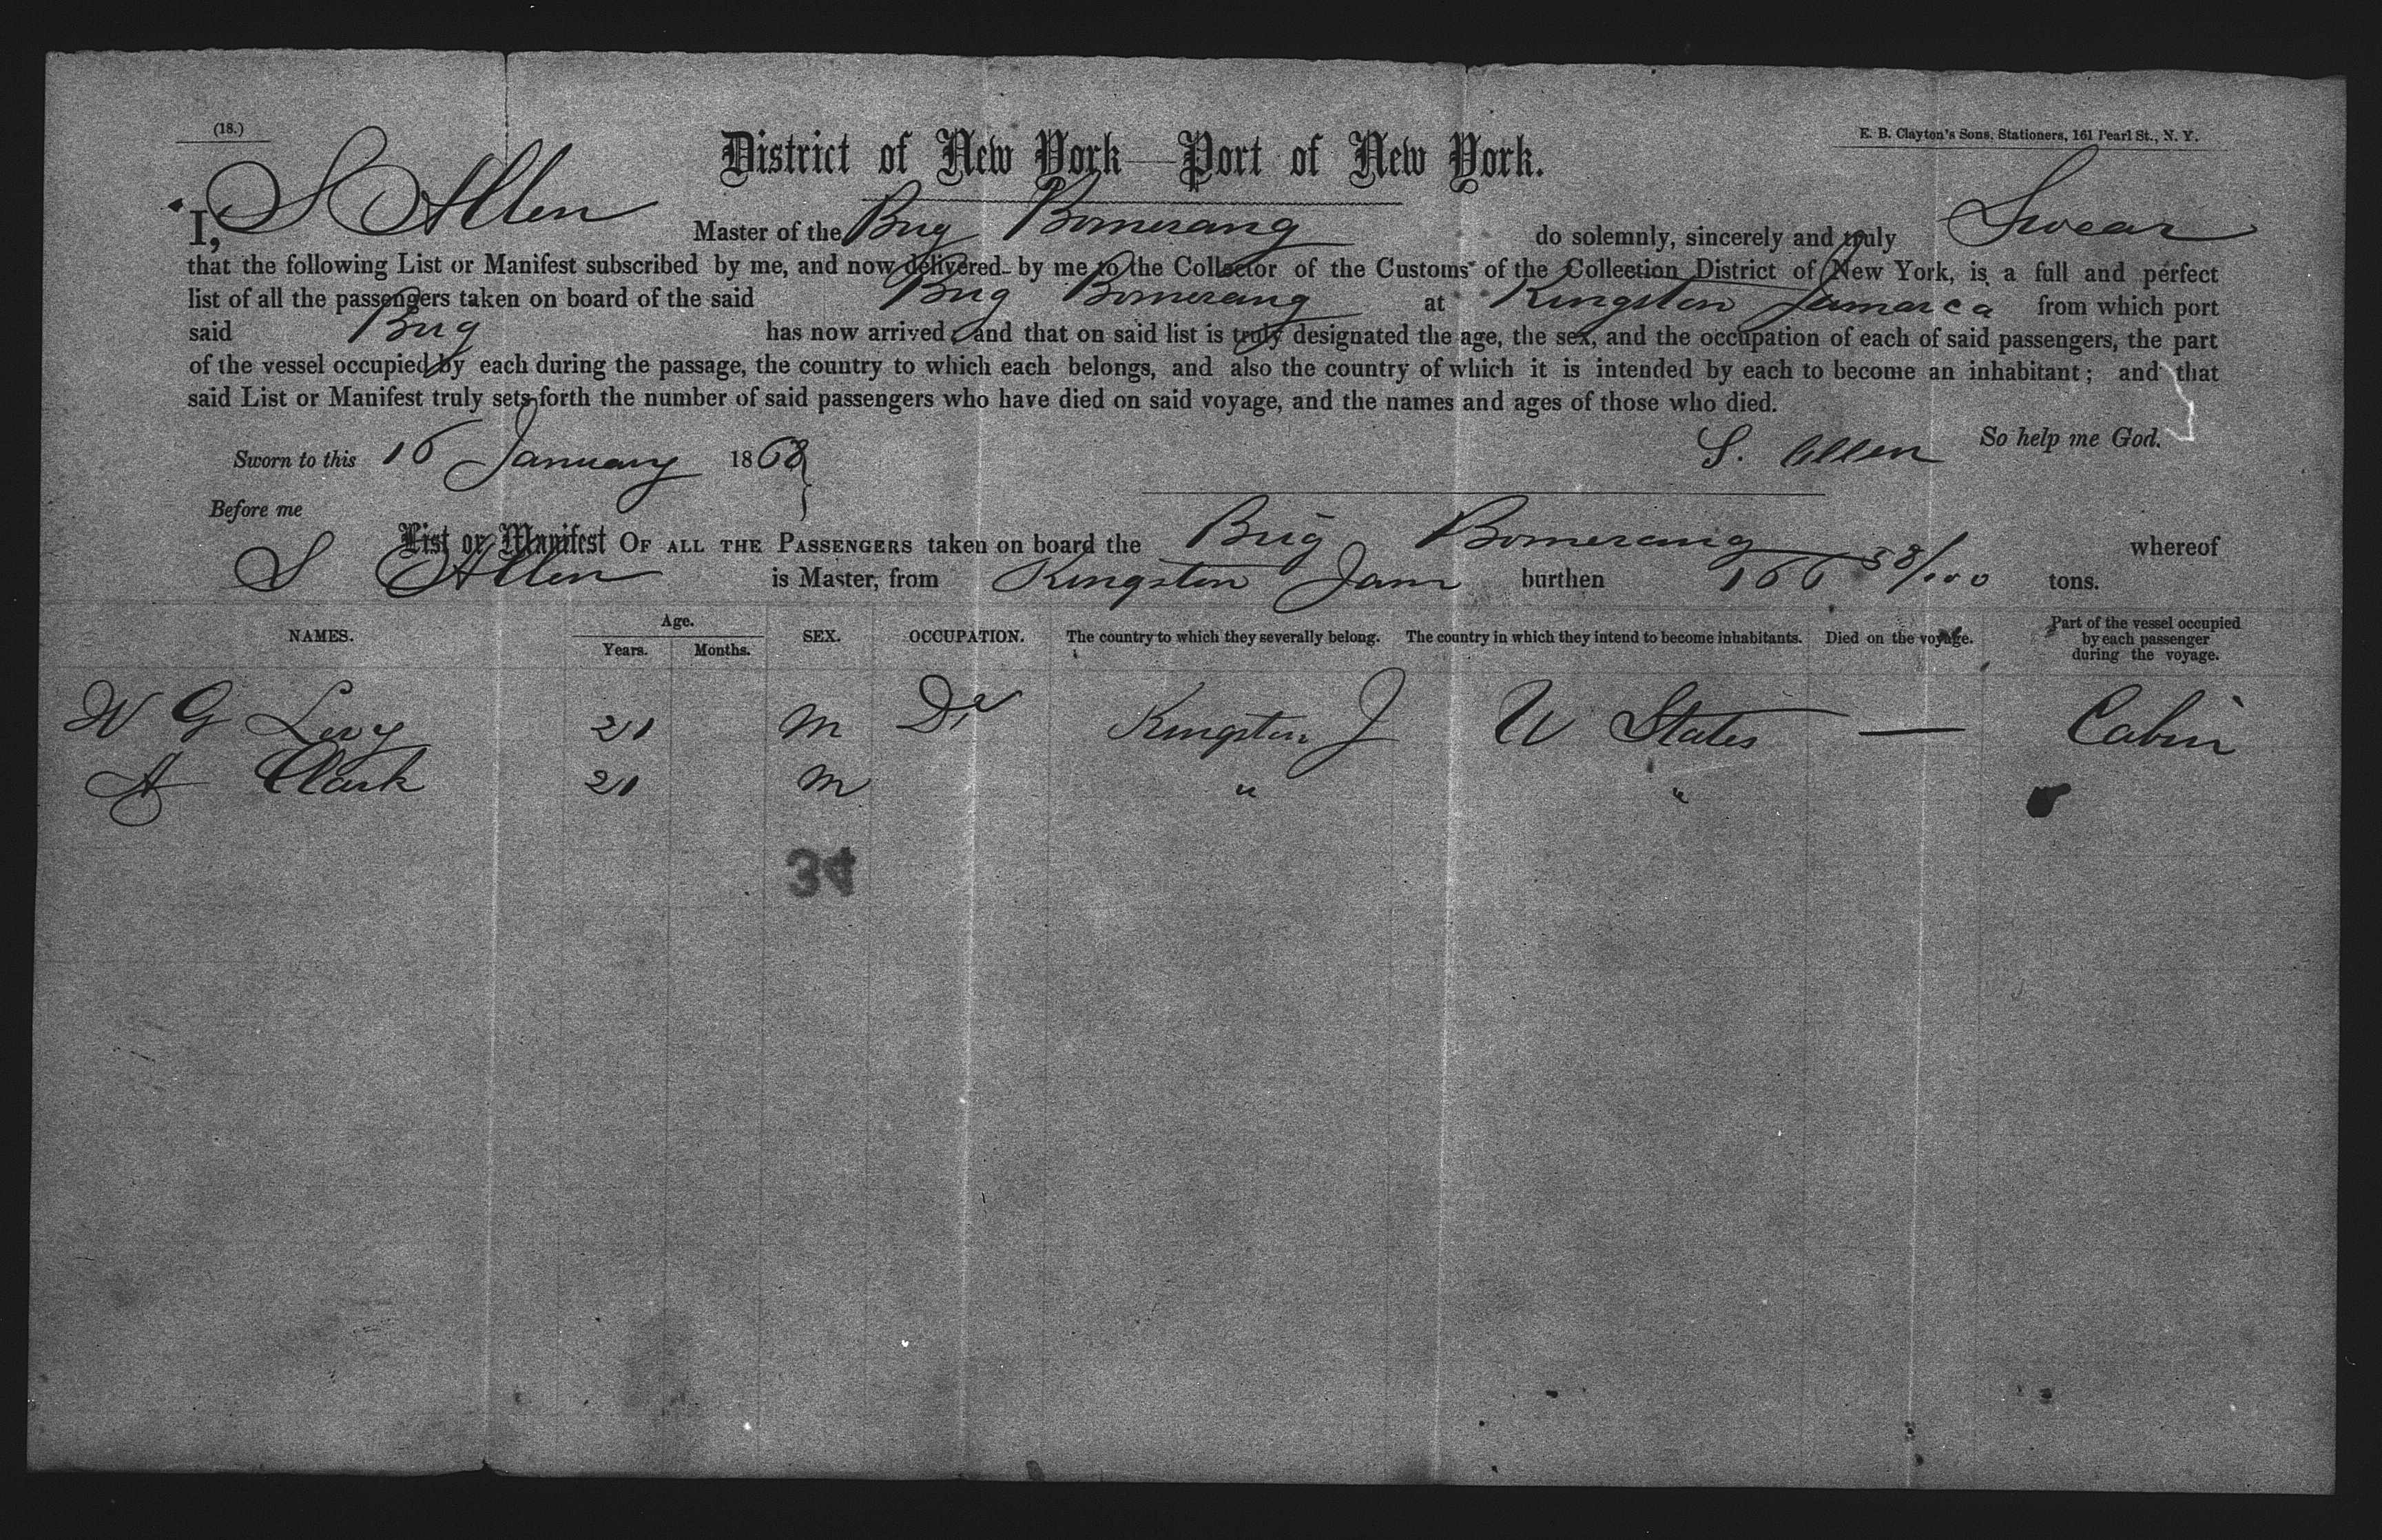 (18.)
E. B. Clayton's Sons, Stationers, 161 Pearl St., N. Y.
District of New York—Port of New York.
I, S Allen Master of the Brig Bomerang do solemnly, sincerely and truly Swear
that the following List or Manifest subscribed by me, and now delivered by me to the Collector of the Customs of the Collection District of New York, is a full and perfect
list of all the passengers taken on board of the said Brig Bomerang at Kingston Jamaica from which port
said Brig has now arrived; and that on said list is truly designated the age, the sex, and the occupation of each of said passengers, the part
of the vessel occupied by each during the passage, the country to which each belongs, and also the country of which it is intended by each to become an inhabitant; and that
said List or Manifest truly sets forth the number of said passengers who have died on said voyage, and the names and ages of those who died.
So help me God.
Sworn to this 16 January 1868 S. Allen
Before me
List or Manifest OF ALL THE PASSENGERS taken on board the Brig Bomerang whereof
S Allen is Master, from Kingston Jam burthen tons.
NAMES. Age. Years. Months. SEX. OCCUPATION. The country to which they severally belong. The country in which they intend to become inhabitants. Died on the voyage. Part of the vessel occupied by each passenger during the voyage.
W G Levy 21 M Dr Kingston J U States — Cabin
A Clark 21 M " "
34